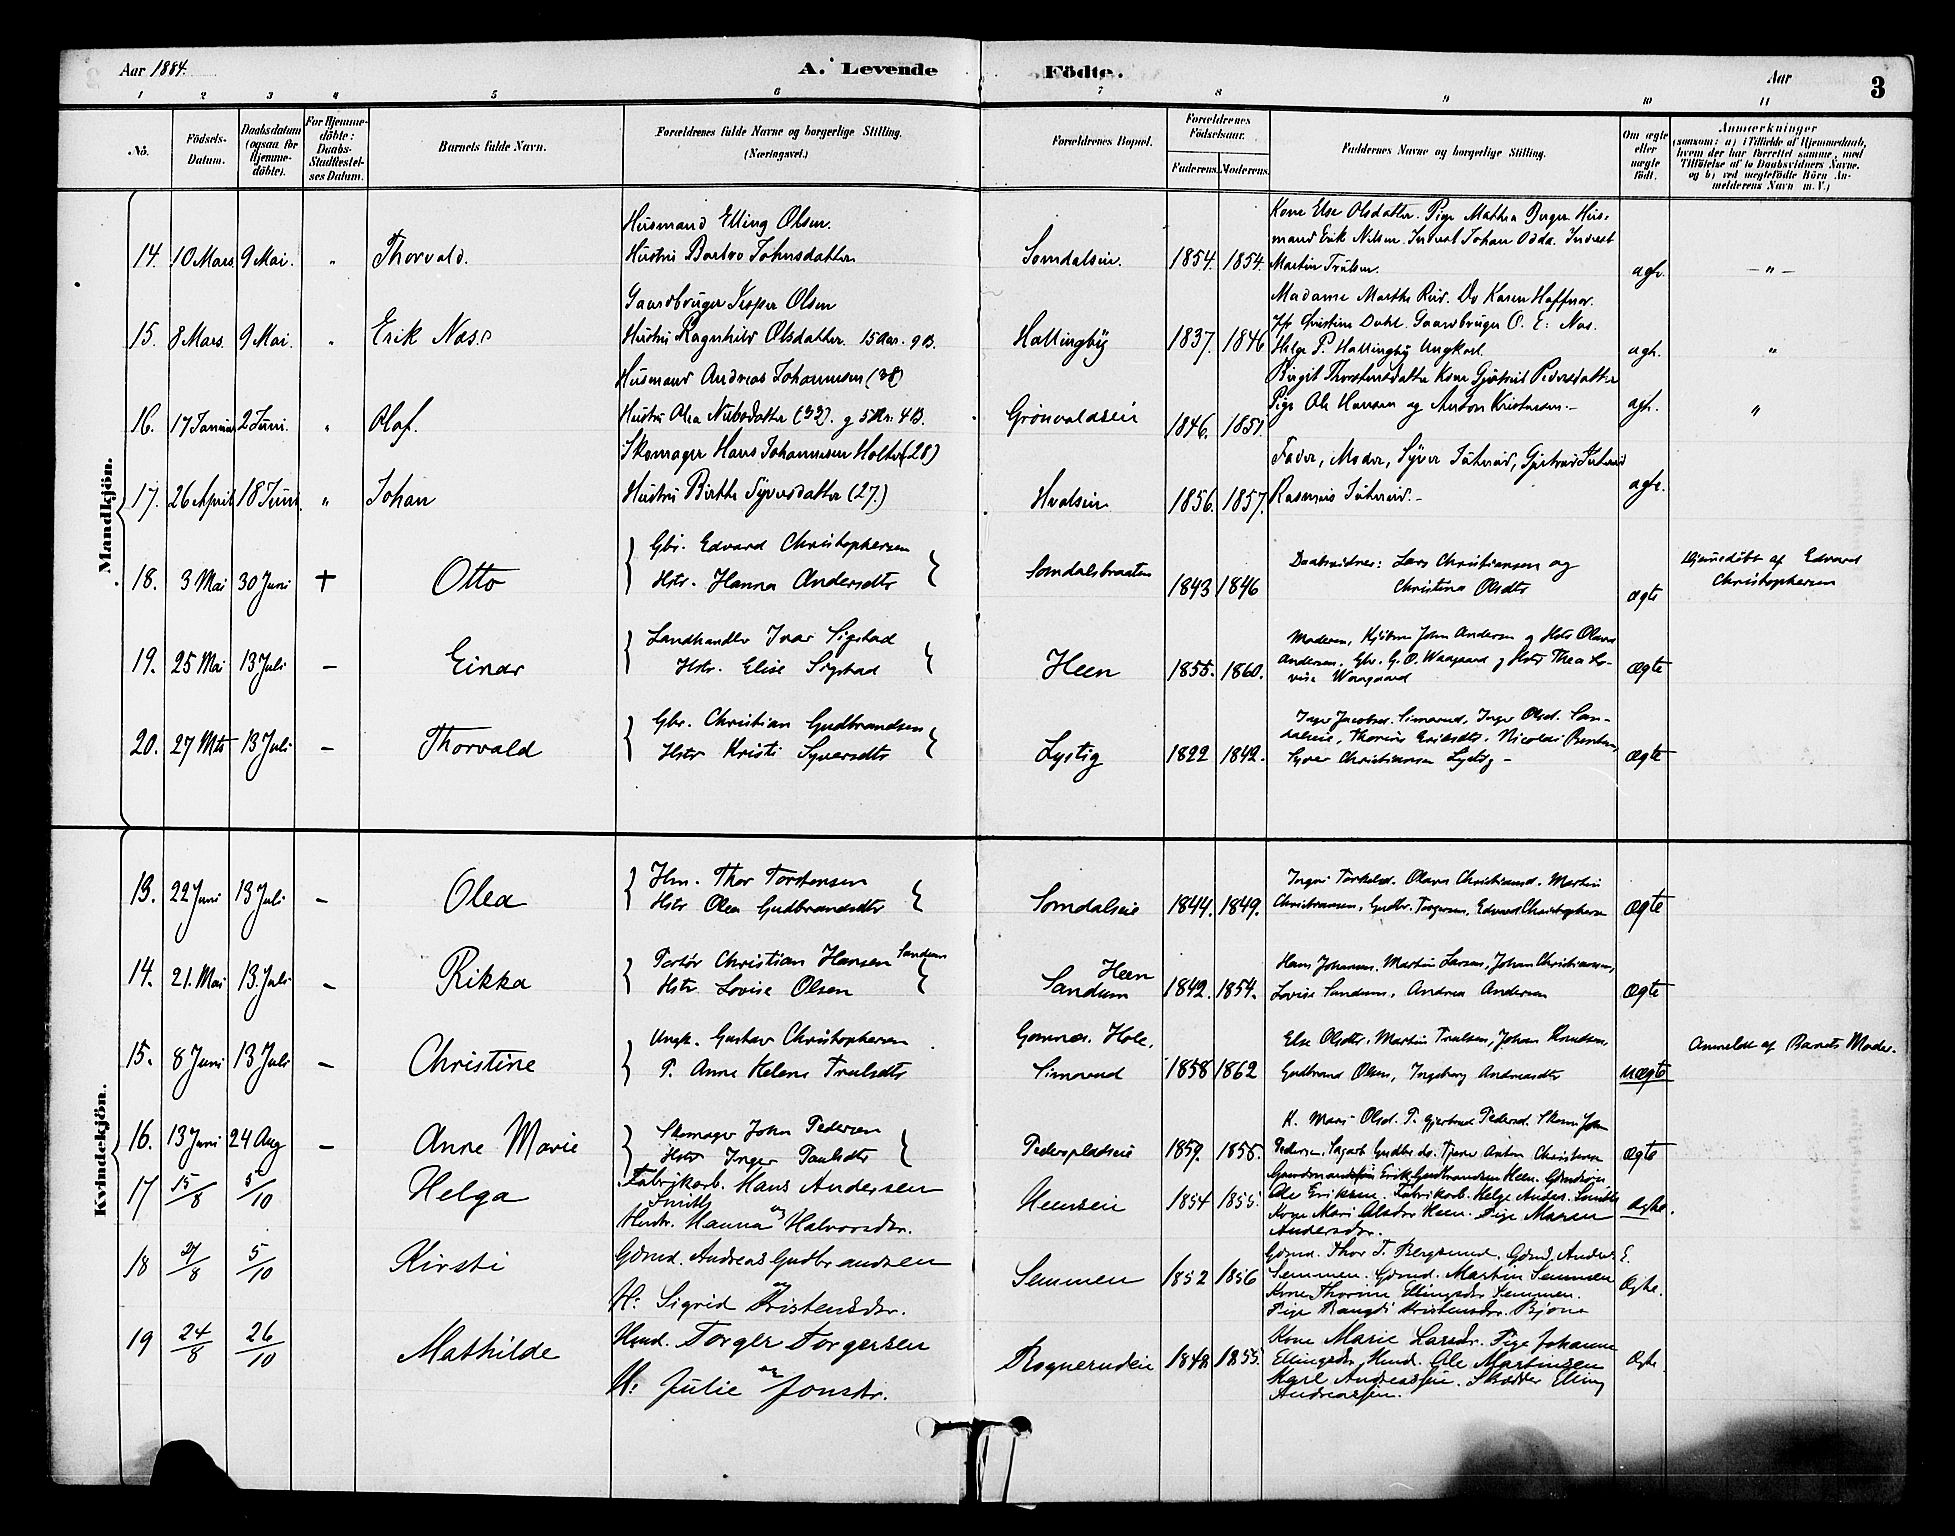 Aar 1884.
A. Levende Födte.
Aar
3
1 2 3 4 5 6 7 8 9 10 11
No.
Födsels-Datum.
Daabsdatum (ogsaa for Hjemme-döbte).
For Hjemme-döbte: Daabs-Stadfæstel-ses Datum.
Barnets fulde Navn.
Forældrenes fulde Navne og borgerlige Stilling.
(Næringsvei.)
Forældrenes Bopæl.
Forældrenes Födselsaar.
Faderens. Moderens.
Faddernes Navne og borgerlige Stilling.
Om ægte eller uægte födt.
Anmærkninger
(saasom: a) i Tilfælde af Hjemmedaab,
hvem der har forrettet samme, med
Tilföielse af to Daabsvidners Navne.
og b) ved uægtefödte Börn An-
melderens Navn m. V.)
Mandkjön.
14. 10 Mars 9 Mai. " Thorvald.
Husmand Elling Olsen.
Hustru Barbro Johnsdatter
Somdalseie. 1854. 1854.
Kone Else Olsdatter. Pige Mathea Berger. Hus-
mand Erik Nilsen. Inderst Johan Odda. Inderst
Martin Trulsen.
ægte. – " –
15. 8 Mars. 9 Mai. " Erik Næss
Gaardbruger Jesper Olsen
Hustru Ragnhild Olsdatter. 15 Aar. 9 B.
Hallingby 1837. 1846
Madame Marthe Rud. Do Karen Haffner.
Jfr Christine Dahl. Gaardbruger O. E. Næs.
Helge P. Hallingby Ungkarl.
ægte. "
16. 17 Januar 2 Juni. " Olaf.
Husmand Andreas Johannesen (38)
Hustru Olea Nubsdatter (33). g 5 Aar. 4 B.
Grönvoldseie 1846. 1851.
Birgit Thorstensdatter Kone Gjertrud Pedersdatter
Pige Ole Hansen og Anton Kristensen.–
ægte. "
17. 26 April 18 Juni. " Johan
Skomager Hans Johannesen Holter (28)
Hustru Birthe Syversdatter (27.)
Hvalseie 1856. 1857.
Fader, Moder, Syver Juterud, Gjertrud Juterud
Rasmus Juterud.–
ægte.
18. 3 Mai 30 Juni + Otto
Gbr. Edvard Christophersen
Hstr. Hanna Andersdtr
Somdalsbraaten 1843 1846
Daabsvidner: Lars Christiansen og
Christine Olsdtr
ægte
Hjemmedöbt af Edvard
Christophersen
19. 25 Mai 13 Juli – Einar
Landhandler Ivar Sigstad
Hstr. Elise Sigstad
Heen 1855. 1860.
Moderen, Kjöbm John Andersen og Hstr Olava
Andersen, Gbr. G. O. Waagaard og Hstr Thea Lo-
vise Waagaard
Ægte
20. 27 Mts 13 Juli – Thorvald
Gbr. Christian Gudbrandsen
Hstr Kristi Syversdtr
Lystig 1822 1842.
Inger Jacobsd. Simarud, Inger Olsd. Som-
dalseie, Thorine Eriksdtr. Nicolai Berntsen,
Syver Christiansen Lystig –
Ægte
Kvindekjön.
13. 22 Juni 13 Juli – Olea
Hm. Thor Torstensen
Hstr Olea Gudbrandsdtr
Somdalseie 1844. 1849.
Ingri Torkelsd. Olava Christiansd. Martin
Christiansen, Gudbr. Torgersen, Edvard Christophersen
Ægte
14. 21. Mai 13. Juli – Rikka
Portör Christian Hansen Sandum
Hstr. Lovise Olsen
Heen
Sandum 1842. 1854.
Hans Johannes. Martin Larsen, Johan Christiansen,
Lovise Sandum, Andrea Andersen
Ægte
15. 8 Juni 13 Juli – Christine
Ungk. Gustav Christophersen
P. Anne Helene Trulsdtr
Gomnæs. Hole.
Simarud 1858 1862
Else Olsdtr. Martin Trulsen, Johan Knudsen,
Gudbrand Olsen, Ingeborg Andreasdtr
uægte
Anmeldt af Barnets Moder.
16. 13 Juni 24 Aug – Anne Marie
Skomager John Pedersen
Hstr Inger Paulsdtr
Pederspladseie 1859. 1855.
K. Mari Olsd. P. Gjertrud Pedersd. Skom. John
Pedersen, Sagarb. Gudbr. do. Tjener Anton Christensen
Ægte
17 15/8 5/10 Helga
Fabrikarb. Hans Andersen
Smith og
Hustr. Hanna Halvorsdr.
Heenseie 1854 1855.
Gaardmand Erik Gudbrandsen Heen. Gaardsön
Ole Eriksen. Fabrikarb. Helge Anders. Smith
Kone Mari Olsdr Heen. Pige Maren
Andersdr.
Ægte.
18 27/8 5/10 Kirsti
Gdmd. Andreas Gudbrandsen
og
H: Sigrid Kristensdr.
Semmen 1852 1856
Gdmd. Thor T. Bergsund. Gdmd. Anders E.
Semmen. Gdmd. Martin Semmen
Kone Thorine Ellingsdr Semmen.
Pige Rangdi Kristensdr. Bjone
Ægte.
19 24/8 26/10 Mathilde
Hmd. Torger Torgersen
og
H: Julie Jonsdr.
Rognerudeie 1848 1855.
Kone Marie Larsdr. Pige Johanne
Ellingsdr. Hmd. Ole Martinsen
Karl Andreassen. Skrædder Elling
Andreassen.
Ægte.